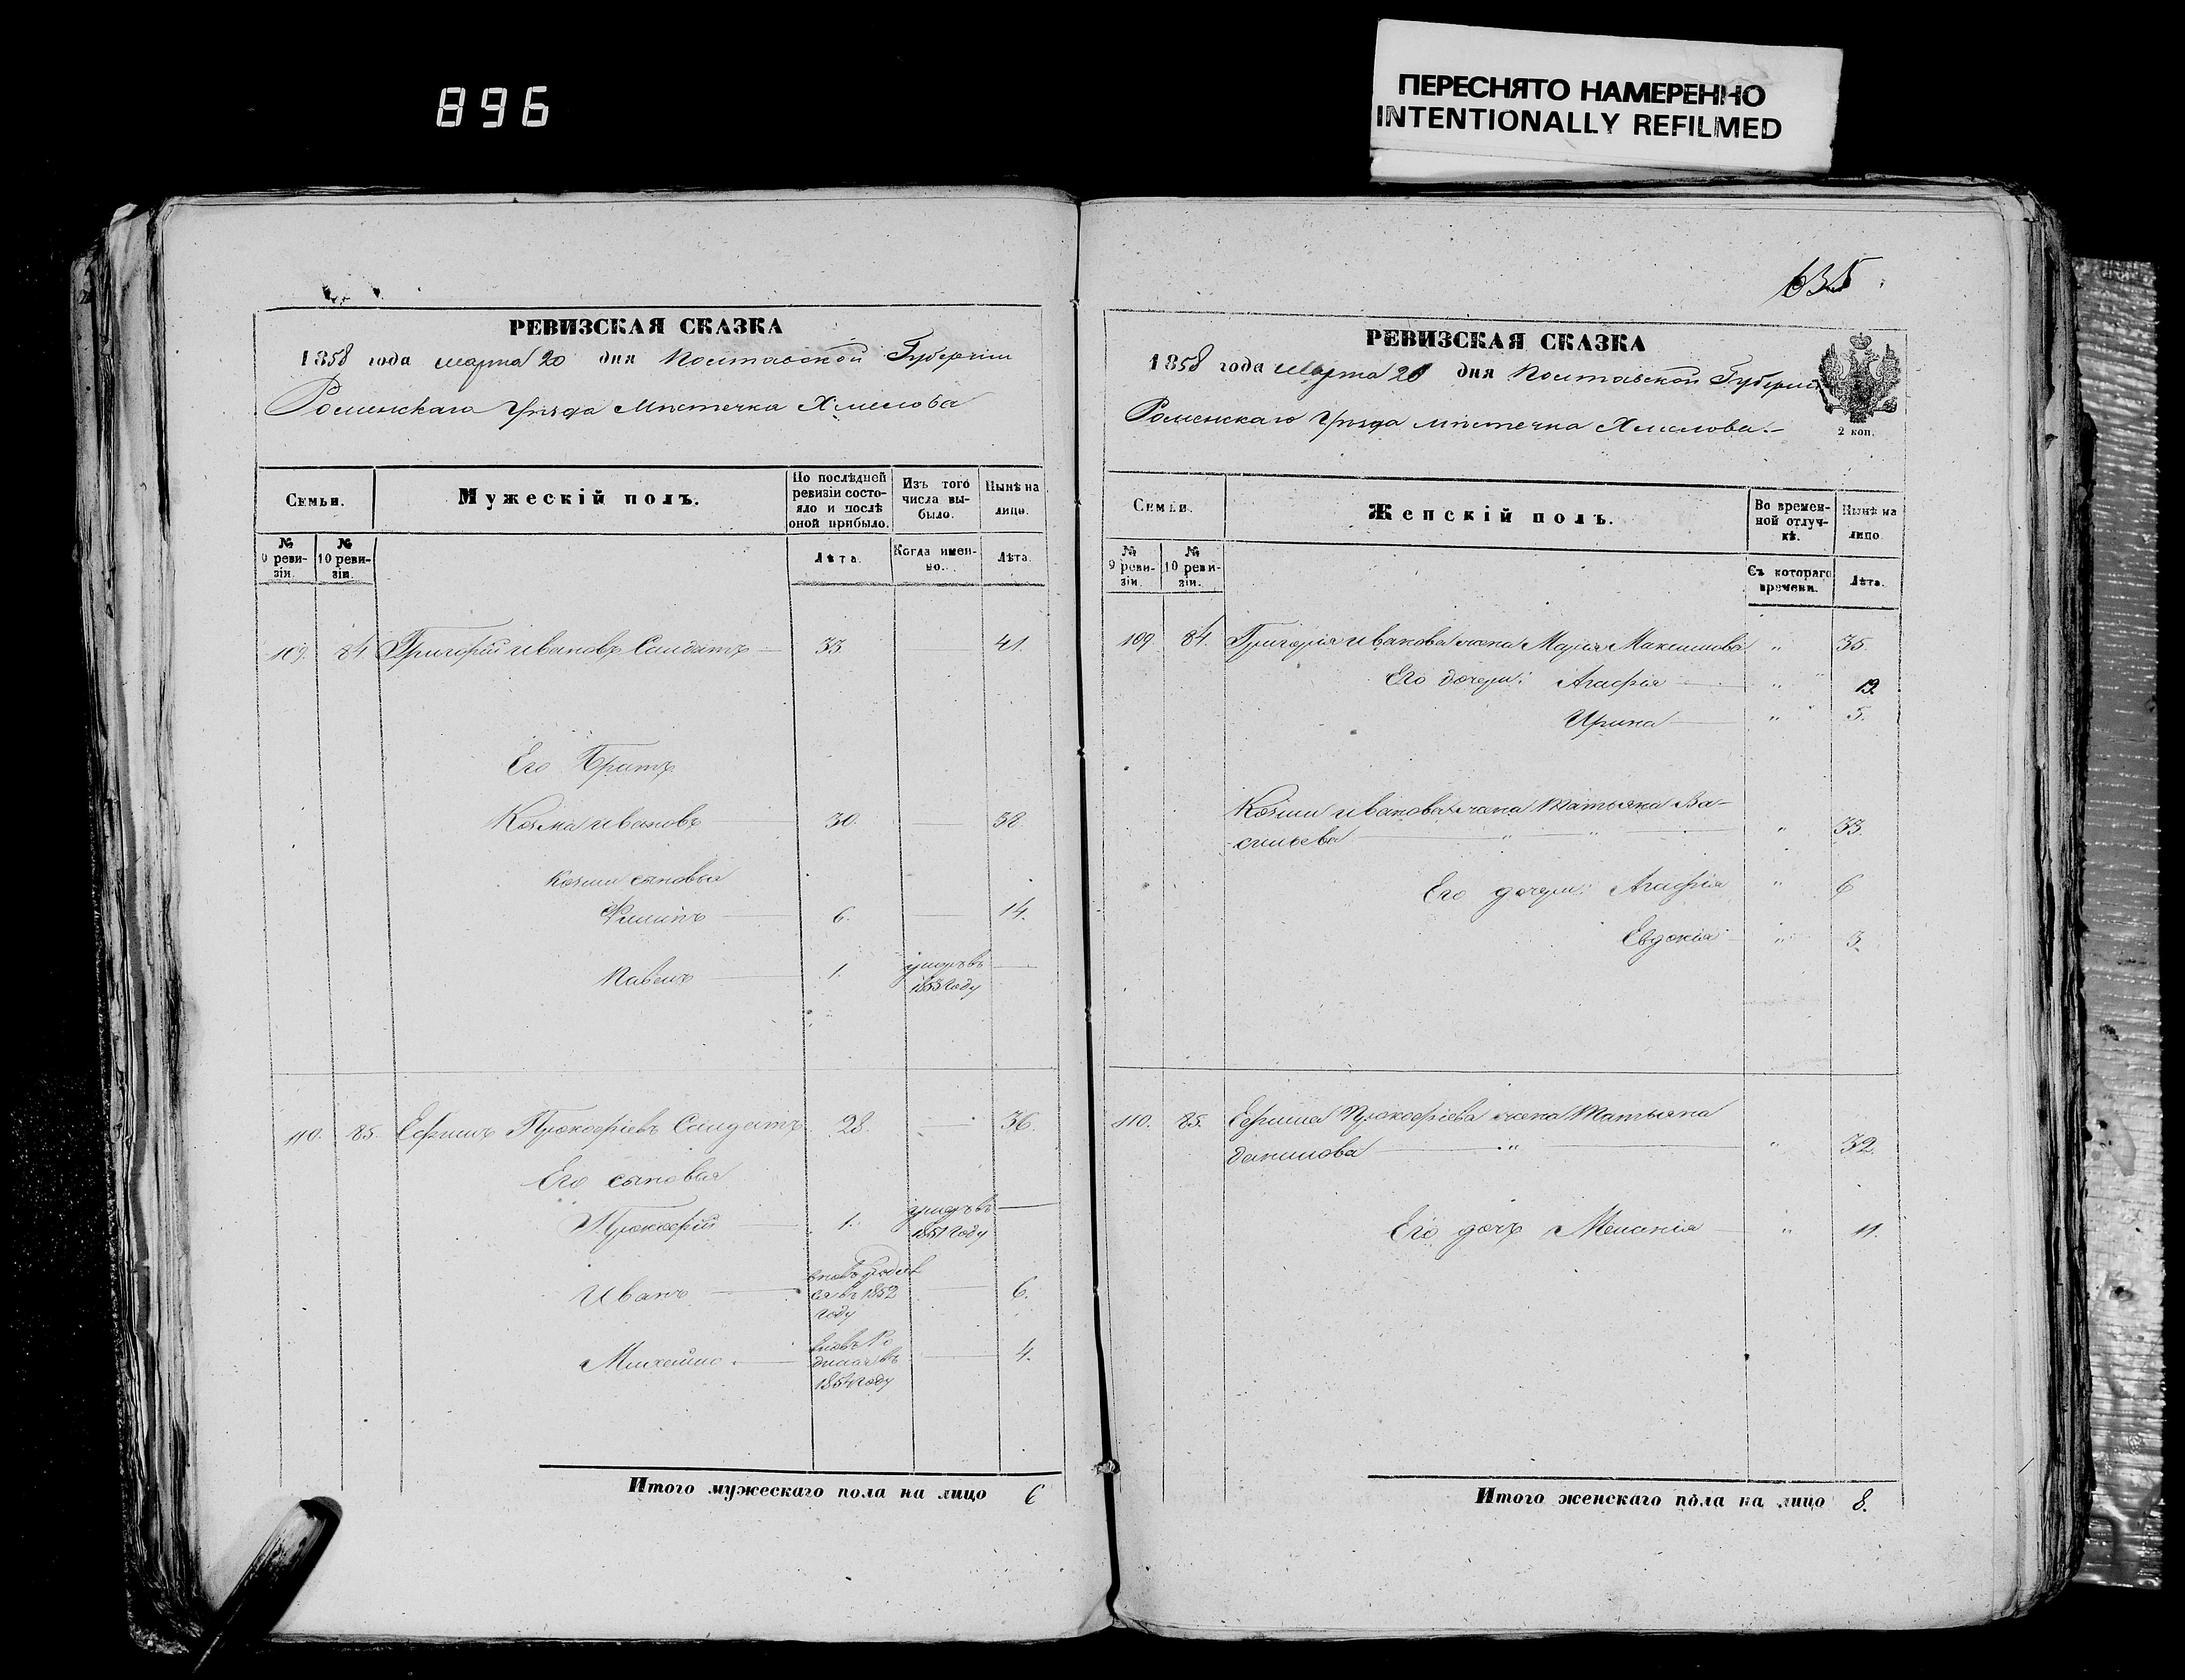 896
ПЕРЕСНЯТО НАМЕРЕННО
INTENTIONALLY REFILMED
РЕВИЗСКАЯ СКАЗКА
1858 года марта 20 дня Полтавской Губерніи
Роменскаго Уѣзда Мѣстечка Хмелова
Семьи.
Мужескій полъ.
По послѣдней ревизіи состояло и послѣ оной прибыло.
Изъ того числа выбыло.
Нынѣ на лицо.
№ 9 ревизіи.
№ 10 ревизіи.
Лѣта.
Когда именно.
Лѣта.
109. 84 Григорій Ивановъ Солдатъ 33 41.
Его Братъ
Козма Ивановъ 30. 38.
Козми сыновья
Филипъ 6. 14.
Павелъ 1. умеръ въ 1853 году
110. 85. Ефимъ Прокофіевъ Солдатъ 28. 36.
Его сыновья
Прокофій 1. умеръ въ 1851 году
Иванъ вновь родился въ 1852 году 6.
Михайло вновь родился въ 1854 году 4.
Итого мужескаго пола на лицо 6
635
РЕВИЗСКАЯ СКАЗКА
1858 года Марта 20 дня Полтавской Губерніи
Роменскаго Уѣзда мѣстечка Хмелова.
2 коп.
Семьи.
Женскій полъ.
Во временной отлучкѣ.
Нынѣ на лицо
№ 9 ревизіи.
№ 10 ревизіи.
Съ котораго времени.
Лѣта.
109. 84. Григорія Иванова жена Марія Максимова " 35.
Его дочери: Агафія " 13.
Ирина " 5.
Козми Иванова жена Татьяна Ва-
сильева " 33.
Его дочери: Агафія " 6
Евдокія " 3.
110. 85. Ефима Прокофіева жена Татьяна
Данилова " 32.
Его дочь Меланія " 11.
Итого женскаго пола на лицо 8.